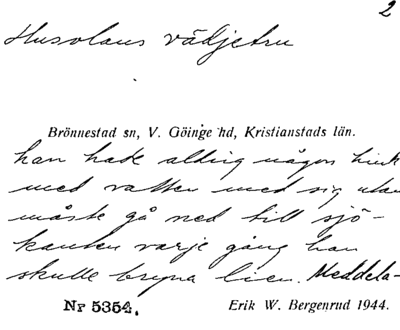 2
Husolaus vädjetru
Brönnestad sn, V. Göinge hd, Kristianstads län.
han hade aldrig någon bink
med vatten med sig utan
måste gå ned till sjö-
kanten varje gång han
skulle bryna lien. Meddela-
Nr 5354. Erik W. Bergenrud 1944.